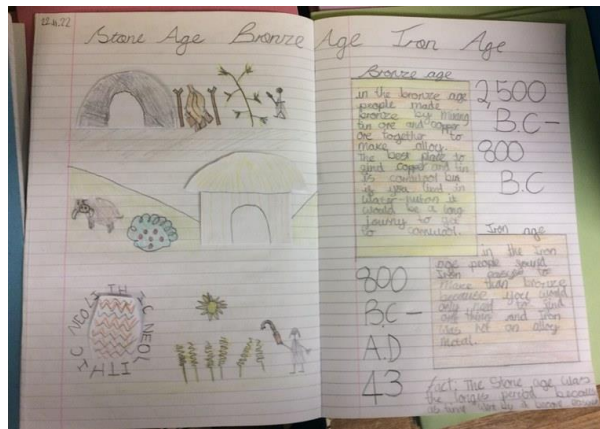 22.11.22
Stone Age Bronze Age Iron Age
NEOLITHIC
NEOLITHIC
Bronze age
in the bronze age
people made
bronze by mixing
tin ore and copper
ore together to
make alloy.
The best place to
find copper and tin
is
but
if you lived in
it
would be a long
to get
to
2,500
B.C-
800
B.C
Iron age
in the Iron
age people found
Iron easyer to
make than bronze
because you would
only need to find
one thing and Iron
was not an alloy
metal.
800
B.C-
A.D
43
Fact: The Stone age was
the longest period